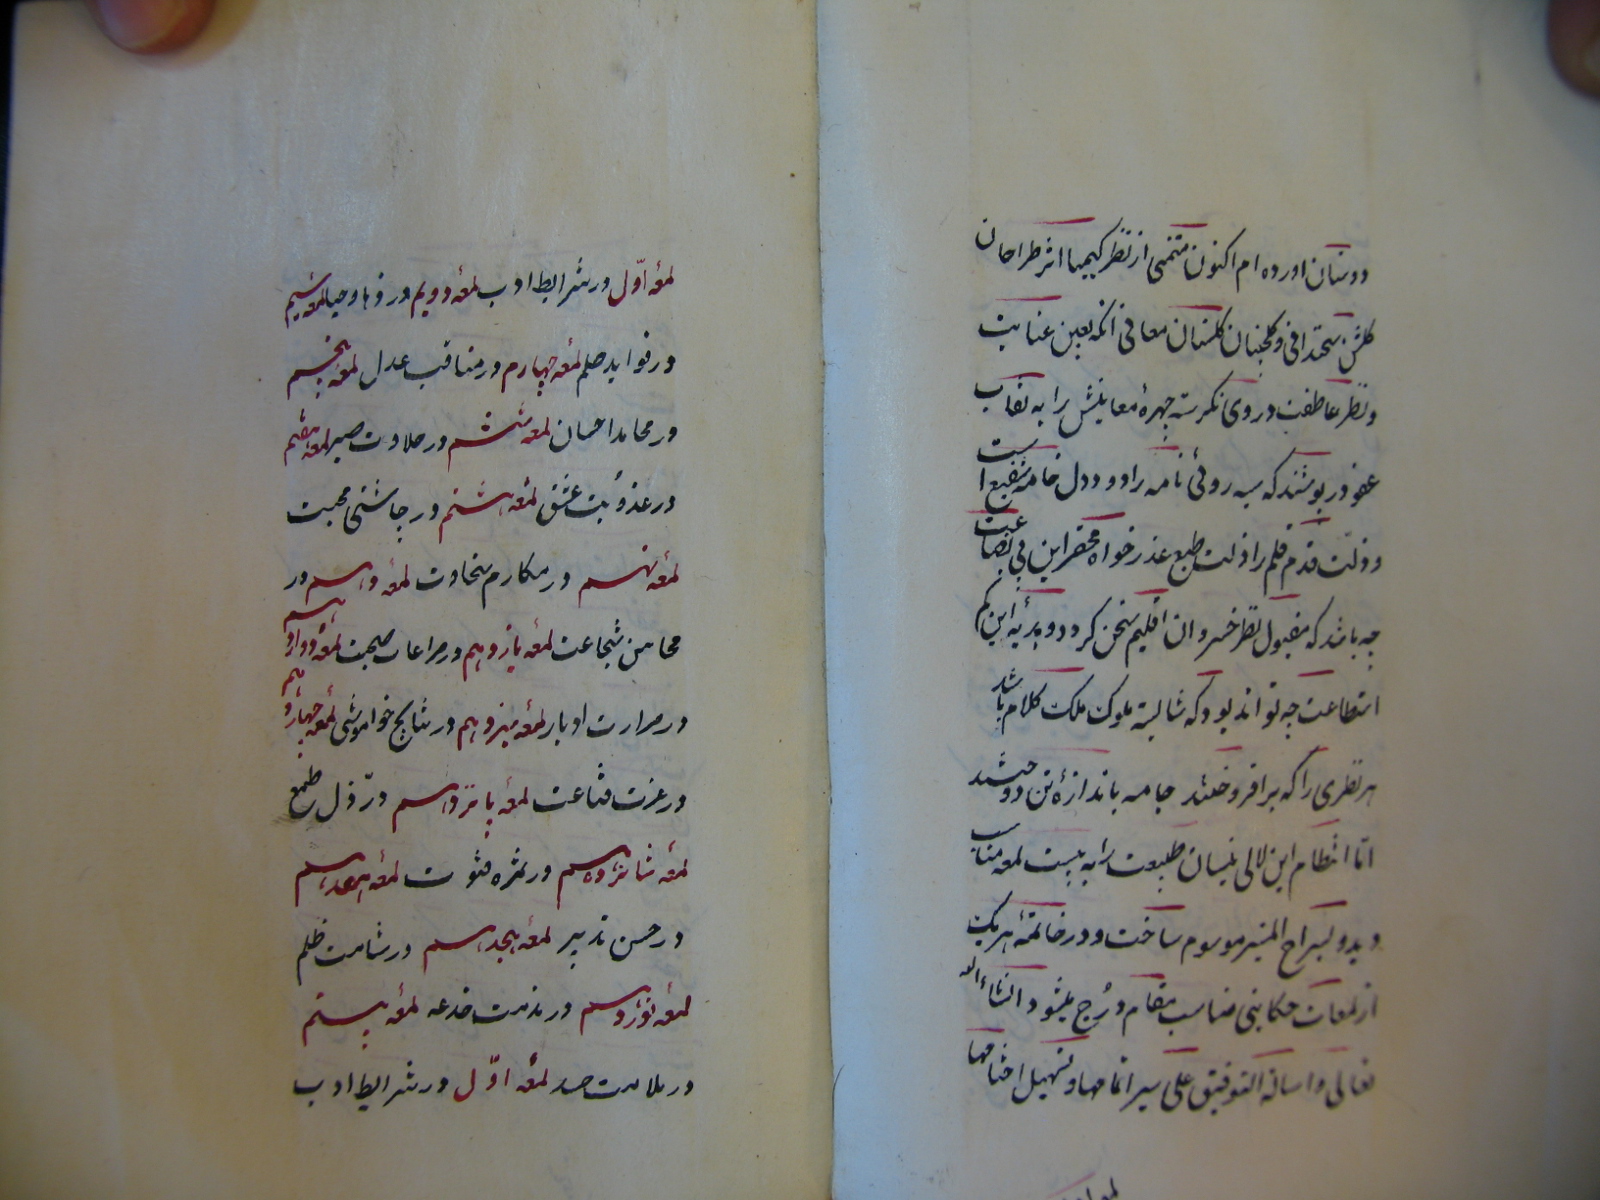 دوستان آورده ام اکنون متمنی از نظر کیمیا اثر طراحان
گلشن سخندانی و گلچینان گلستان معانی آنکه بعین عنایت
و نظر عاطفت در وی نگرسته چهرهٔ معایبش را به نقاب
عفو در پوشند که سیه روئی نامه را دو دل خامه شفیع است
و ذلّت قدم قلم را ذلت طبع عذر خواه محقر این بی بضاعت
چه باشد که مقبول نظر خسروان اقلیم سخن گردد و هدیهٔ این کم
استطاعت چه تواند بود که شایسته ملوک ملک کلام باشد
هر نظری را که برافروختند جامه باندازهٔ تن دوختند
اما انتظام این لالی نیسان طبیعت را به بیست لمعه مناسب
دیدو بسراج المنیر موسوم ساخت و در خاتمهٔ هر یک
از لمعات حکایتی مناسب مقام درج میشود انشاءالله
تعالی و اساله التوفیق علی سیر اتمامها و تسهیل اختتامها
لمعهٔ اوّل در شرایط ادب لمعهٔ دویم در وفا و حیا لمعه سیم
در فواید حلم لمعهٔ چهارم در مناقب عدل لمعهٔ پنجم
در محامد احسان لمعه ششم در حلاوت صبر لمعه هفتم
در عذوبت عشق لمعه هشتم در چاشنی محبت
لمعه نهم در مکارم سخاوت لمعهٔ دهم در
محاسن شجاعت لمعه یازدهم در مراعات صحبت لمعه دوازدهم
در مرارت ادبار لمعه سیزدهم در نتایج خواموشی لمعه چهاردهم
در عزت قناعت لمعه پانزدهم در ذل طمع
لمعه شانزدهم در ثمره فتوت لمعه هفدهم
در حسن تدبیر لمعه هیجدهم در شامت ظلم
لمعه نوزدهم در مذمت خدعه لمعه بیستم
در ملامت حسد لمعه اوّل در شرایط ادب